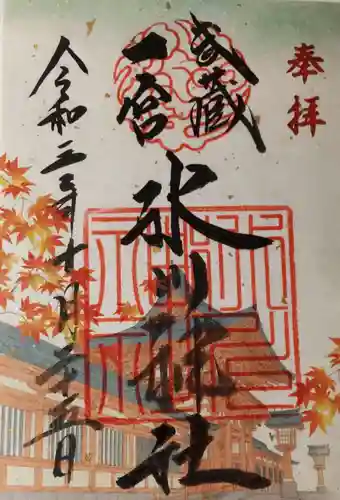 奉拝
武蔵
一宮
氷川神社
令和三年十一月二十五日